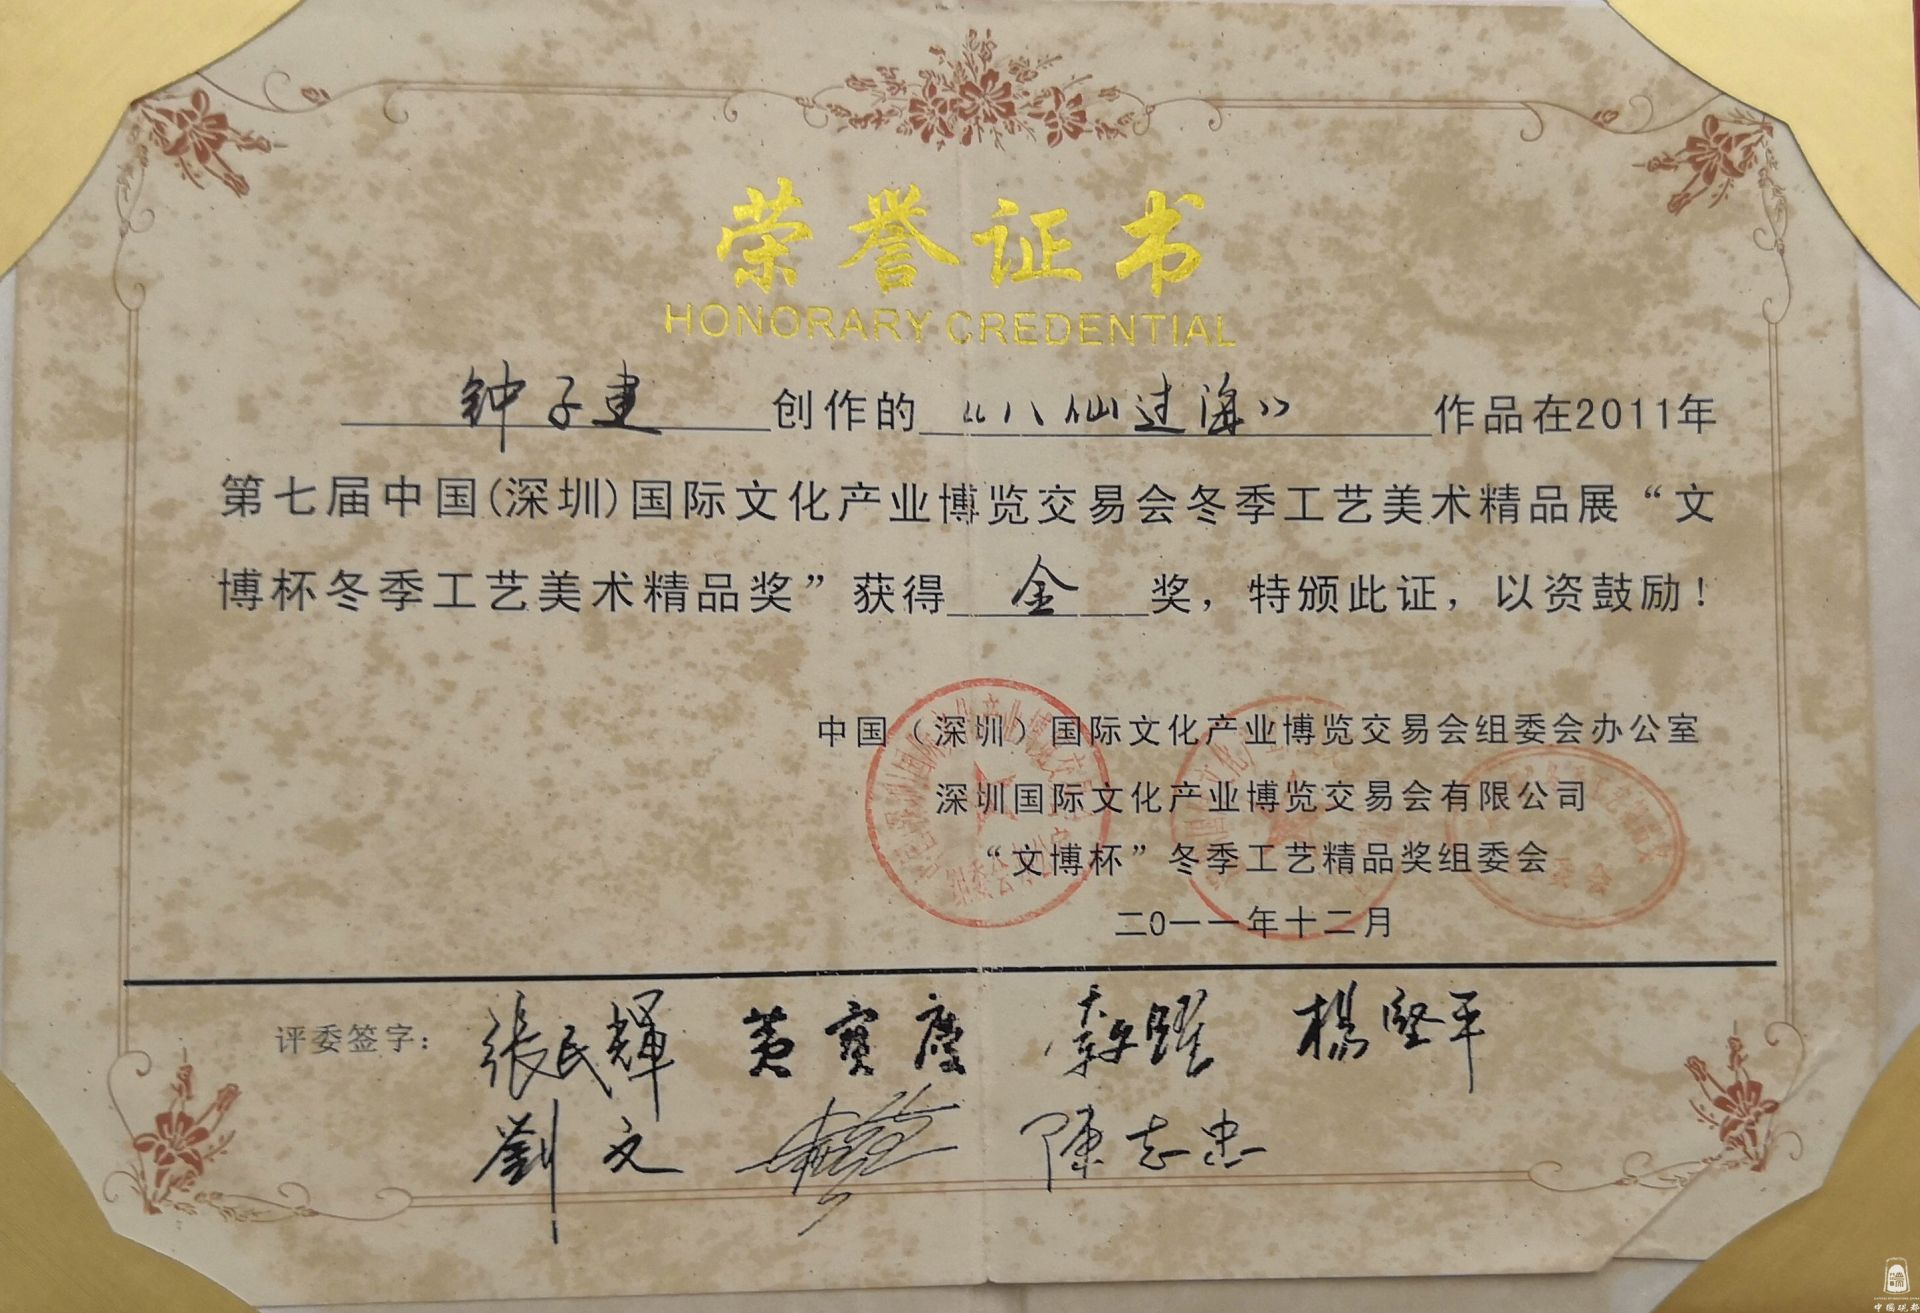 荣誉证书
HONORARY CREDENTIAL
钟子建创作的“八仙过海”作品在2011年
第七届中国(深圳)国际文化产业博览交易会冬季工艺美术精品展“文
博杯冬季工艺美术精品奖”获得金奖，特颁此证，以资鼓励！
中国（深圳）国际文化产业博览交易会组委会办公室
深圳国际文化产业博览交易会有限公司
“文博杯”冬季工艺精品奖组委会
二0一一年十二月
评委签字：張民輝 黄寶慶 楊堅平
劉文 陳志忠
中國硯都